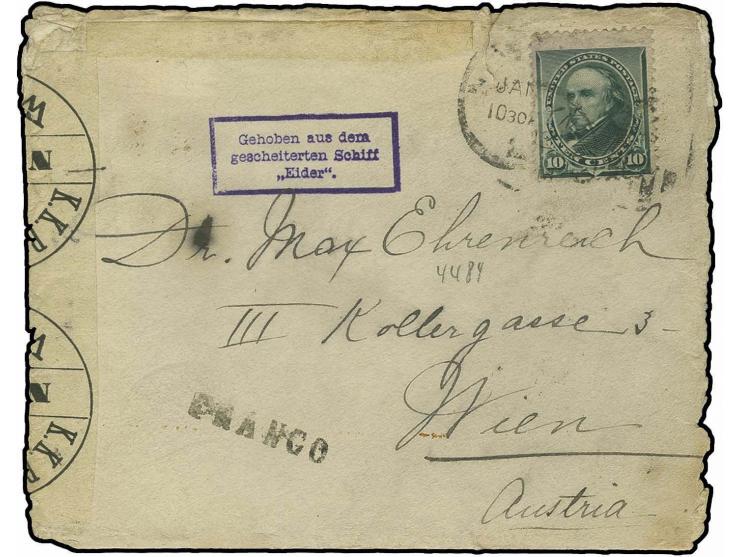 JAN
1030A
UNITED STATES POSTAGE
10 TEN CENTS 10
Gehoben aus dem
gescheiterten Schiff
„Eider“.
Dr. Max Ehrenreich
4484
III Kollergasse 3-
Wien
Austria
FRANCO
W N K.K.P
W N K.K.P